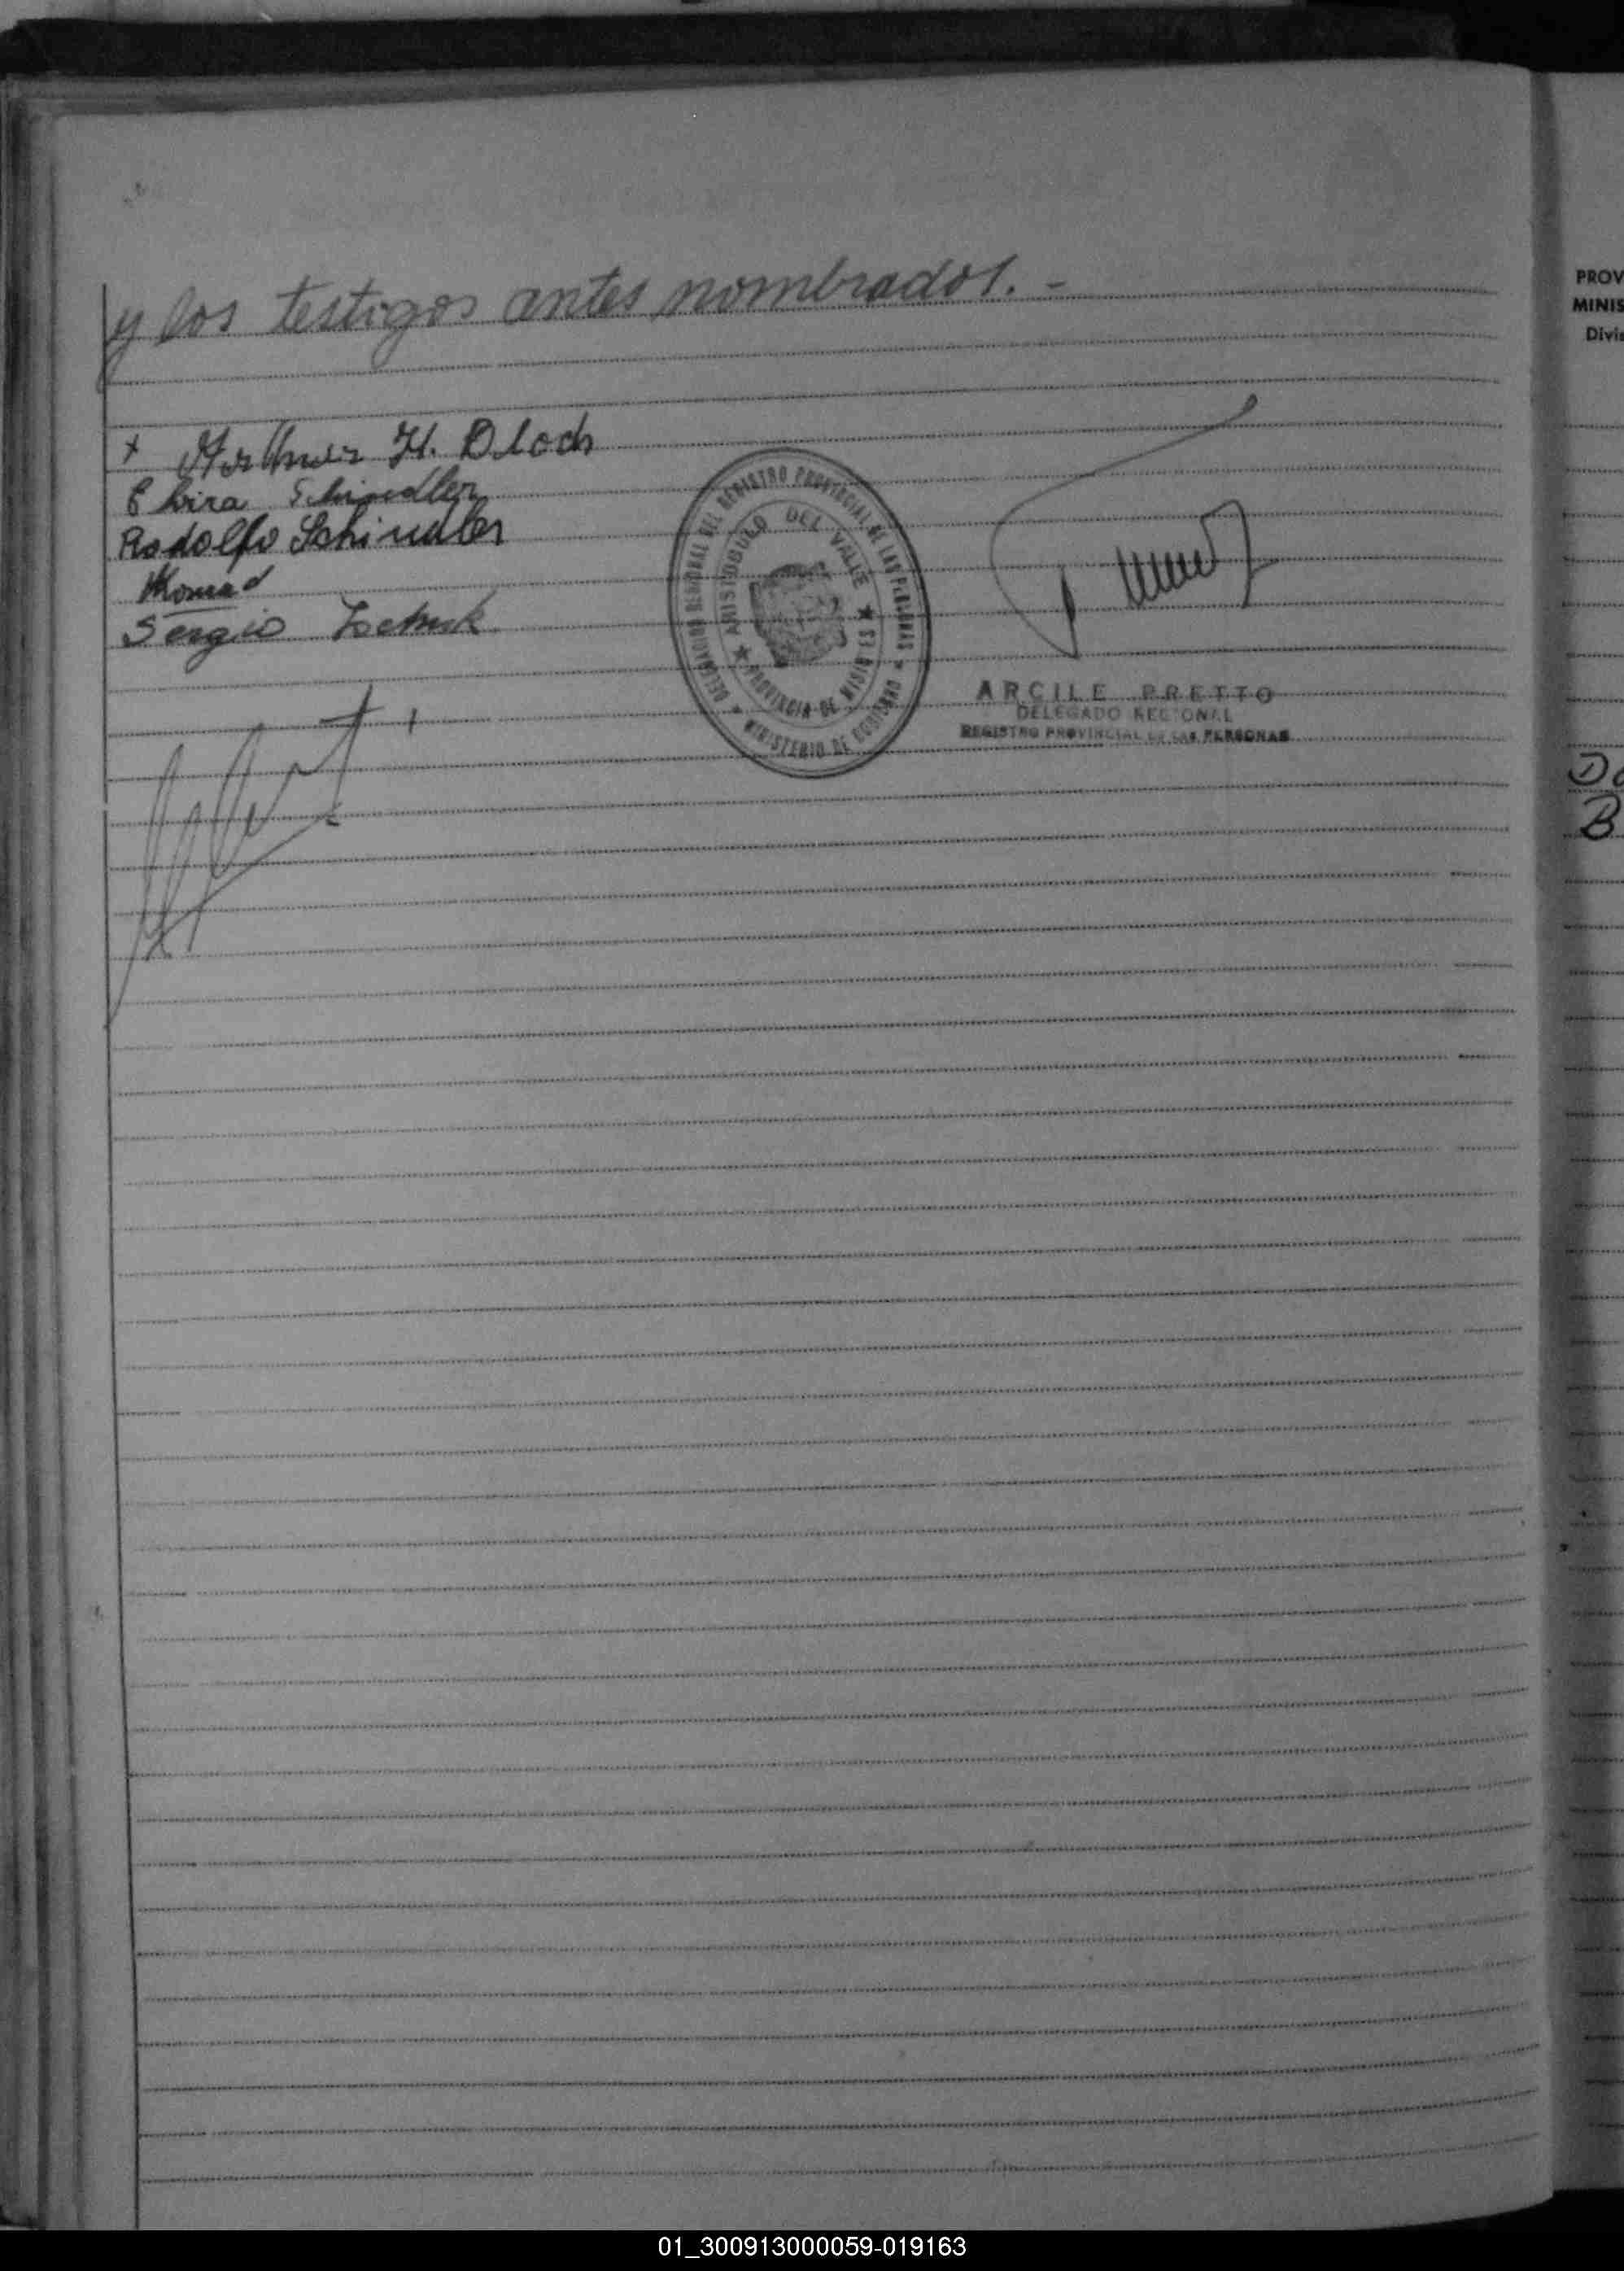 y los testigos antes nombrados. -
x Arthur H. Bloch
Elvira Schindler
Rodolfo Schindler
Konrad
Sergio
DELEGACION REGIONAL DEL REGISTRO PROVINCIAL DE LAS PERSONAS
MINISTERIO DE GOBIERNO
ARISTOBULO DEL VALLE
PROVINCIA DE MISIONES
ARCILE PRETTO
DELEGADO REGIONAL
REGISTRO PROVINCIAL DE LAS PERSONAS
PROV
MINIS
Divis
Do
B
01_300913000059-019163